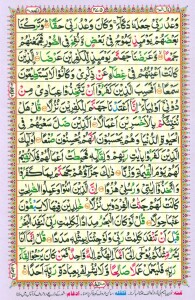 وَعْدُ رَبِّيْ جَعَلَهٗ دَكَّآءَ وَكَانَ وَعْدُ رَبِّيْ حَقًّا وَتَرَكْنَا
بَعْضَهُمْ يَوْمَئِذٍ يَّمُوْجُ فِيْ بَعْضٍ وَّنُفِخَ فِي الصُّوْرِ فَجَمَعْنٰهُمْ
جَمْعًا وَّعَرَضْنَا جَهَنَّمَ يَوْمَئِذٍ لِّلْكٰفِرِيْنَ عَرْضًا الَّذِيْنَ
كَانَتْ اَعْيُنُهُمْ فِيْ غِطَآءٍ عَنْ ذِكْرِيْ وَكَانُوْا لَا يَسْتَطِيْعُوْنَ
سَمْعًا اَفَحَسِبَ الَّذِيْنَ كَفَرُوْا اَنْ يَّتَّخِذُوْا عِبَادِيْ مِنْ دُوْنِيْ
اَوْلِيَآءَ اِنَّا اَعْتَدْنَا جَهَنَّمَ لِلْكٰفِرِيْنَ نُزُلًا قُلْ هَلْ
نُنَبِّئُكُمْ بِالْاَخْسَرِيْنَ اَعْمَالًا الَّذِيْنَ ضَلَّ سَعْيُهُمْ فِي
الْحَيٰوةِ الدُّنْيَا وَهُمْ يَحْسَبُوْنَ اَنَّهُمْ يُحْسِنُوْنَ صُنْعًا اُولٰٓئِكَ
الَّذِيْنَ كَفَرُوْا بِاٰيٰتِ رَبِّهِمْ وَلِقَآئِهٖ فَحَبِطَتْ اَعْمَالُهُمْ فَلَا نُقِيْمُ
لَهُمْ يَوْمَ الْقِيٰمَةِ وَزْنًا ذٰلِكَ جَزَآؤُهُمْ جَهَنَّمُ بِمَا كَفَرُوْا
وَاتَّخَذُوْا اٰيٰتِيْ وَرُسُلِيْ هُزُوًا اِنَّ الَّذِيْنَ اٰمَنُوْا وَعَمِلُوا
الصّٰلِحٰتِ كَانَتْ لَهُمْ جَنّٰتُ الْفِرْدَوْسِ نُزُلًا خٰلِدِيْنَ فِيْهَا لَا
يَبْغُوْنَ عَنْهَا حِوَلًا قُلْ لَّوْ كَانَ الْبَحْرُ مِدَادًا لِّكَلِمٰتِ رَبِّيْ لَنَفِدَ
الْبَحْرُ قَبْلَ اَنْ تَنْفَدَ كَلِمٰتُ رَبِّيْ وَلَوْ جِئْنَا بِمِثْلِهٖ مَدَدًا قُلْ اِنَّمَا
اَنَا بَشَرٌ مِّثْلُكُمْ يُوْحٰٓى اِلَيَّ اَنَّمَا اِلٰهُكُمْ اِلٰهٌ وَّاحِدٌ فَمَنْ كَانَ يَرْجُوْا
لِقَآءَ رَبِّهٖ فَلْيَعْمَلْ عَمَلًا صَالِحًا وَّلَا يُشْرِكْ بِعِبَادَةِ رَبِّهٖٓ اَحَدًا